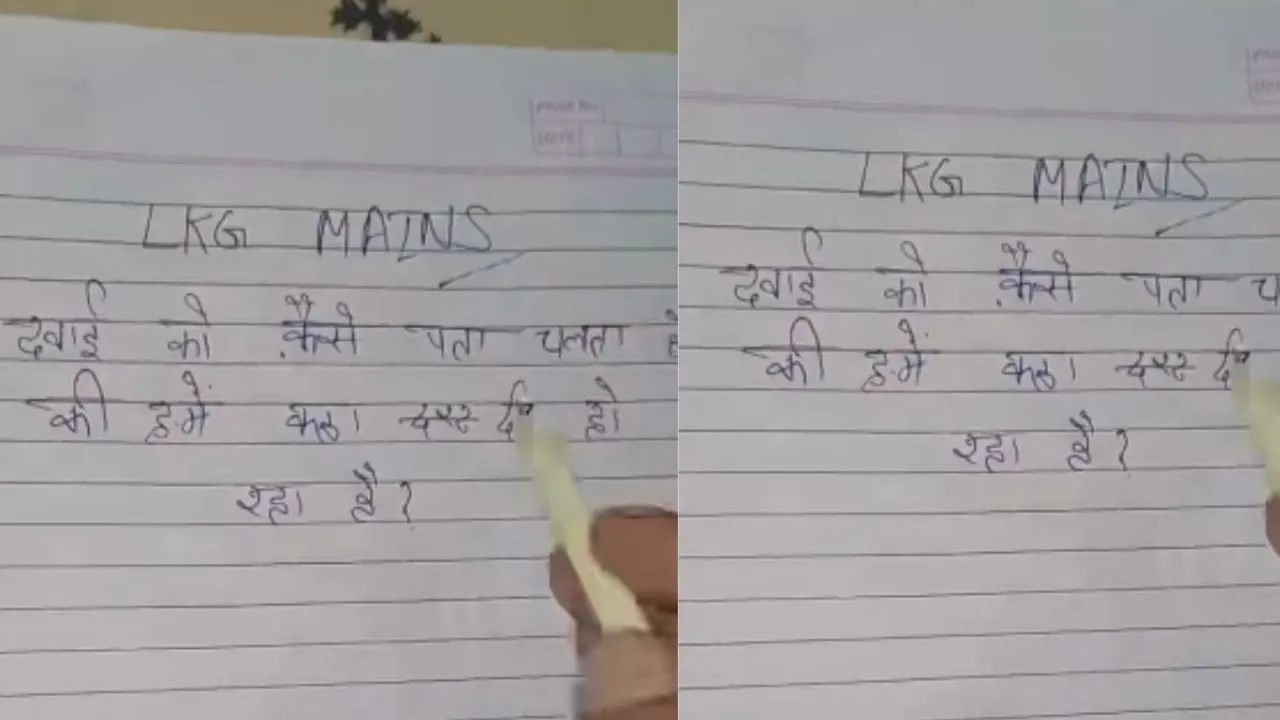 PAGE No.
DATE
LKG MAINS
दवाई को कैसे पता चलता
की हमें कहा हो
रहा है?
LKG MAINS
दवाई को कैसे पता
की हमें कहा
रहा है?